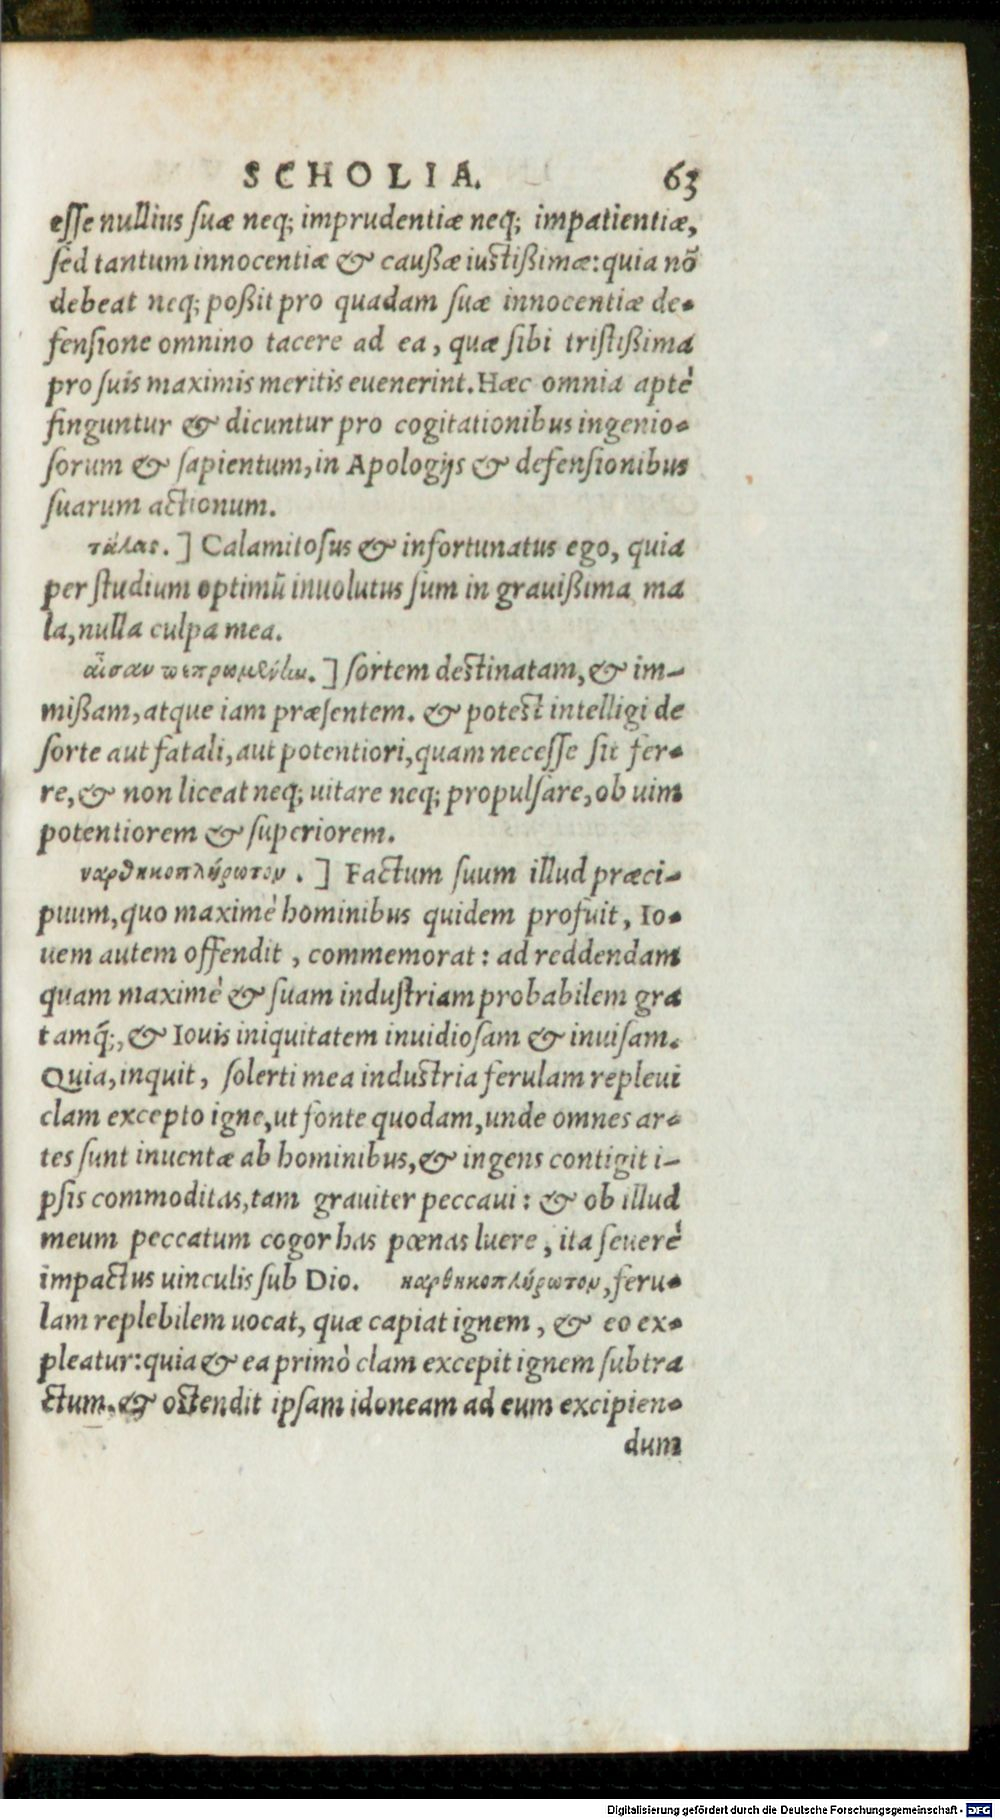 SCHOLIA. 63
esse nullius suæ neq; imprudentiæ neq; impatientiæ,
sed tantum innocentiæ & caußæ iustißimæ: quia nō
debeat neq; poßit pro quadam suæ innocentiæ de-
fensione omnino tacere ad ea, quæ sibi tristißima
pro suis maximis meritis euenerint. Hæc omnia aptè
finguntur & dicuntur pro cogitationibus ingenio-
sorum & sapientum, in Apologijs & defensionibus
suarum actionum.
τάλας.] Calamitosus & infortunatus ego, quia
per studium optimū inuolutus sum in grauißima ma
la, nulla culpa mea.
αἶσαν πεπρωμένην.] sortem destinatam, & im-
mißam, atque iam præsentem. & potest intelligi de
sorte aut fatali, aut potentiori, quam necesse sit fer-
re, & non liceat neq; uitare neq; propulsare, ob uim
potentiorem & superiorem.
ναρθηκοπλήρωτον.] Factum suum illud præci-
puum, quo maximè hominibus quidem profuit, Io-
uem autem offendit, commemorat: ad reddendam
quam maximè & suam industriam probabilem gra
tamq́;, & Iouis iniquitatem inuidiosam & inuisam.
Quia, inquit, solerti mea industria ferulam repleui
clam excepto igne, ut fonte quodam, unde omnes ar-
tes sunt inuentæ ab hominibus, & ingens contigit i-
psis commoditas, tam grauiter peccaui: & ob illud
meum peccatum cogor has pœnas luere, ita seuerè
impactus uinculis sub Dio. ναρθηκοπλήρωτον, feru-
lam replebilem uocat, quæ capiat ignem, & eo ex-
pleatur: quia & ea primò clam excepit ignem subtra
ctum. & ostendit ipsam idoneam ad eum excipien-
dum
Digitalisierung gefördert durch die Deutsche Forschungsgemeinschaft - DFG